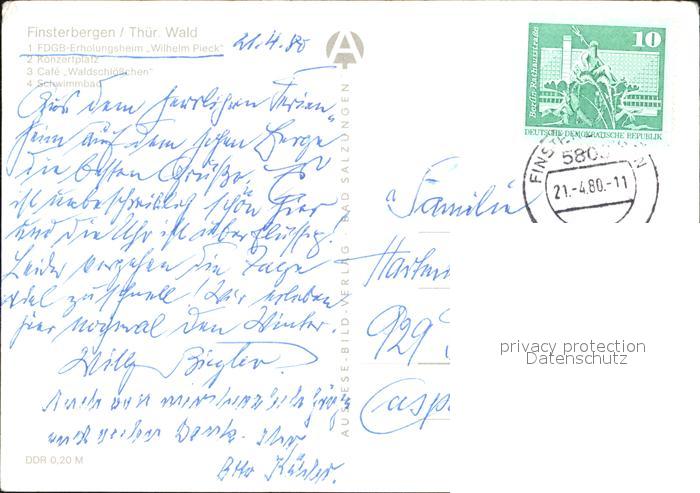 Finsterbergen / Thür. Wald
1 FDGB-Erholungsheim „Wilhelm Pieck"
2 Konzertplatz
3 Café „Waldschlößchen"
4 Schwimmbad
21.4.80
Aus dem herrlichen Ferien-
heim auf dem hohen Berge
die besten Grüße. Es
ist unbeschreiblich schön hier
und die Uhr ist überflüssig!
Leider vergehen die Tage
viel zu schnell! Wir erleben
hier nochmal den Winter.
Willy Ziegler
Auch von mir herzliche Grüße
und vielen Dank. Ihr
Otto
DDR 0,20 M
AUSLESE-BILD-VERLAG · BAD SALZUNGEN
Berlin-Rathausstraße
10
DEUTSCHE DEMOKRATISCHE REPUBLIK
580
21.-4.80.-11
Familie
929
privacy protection
Datenschutz